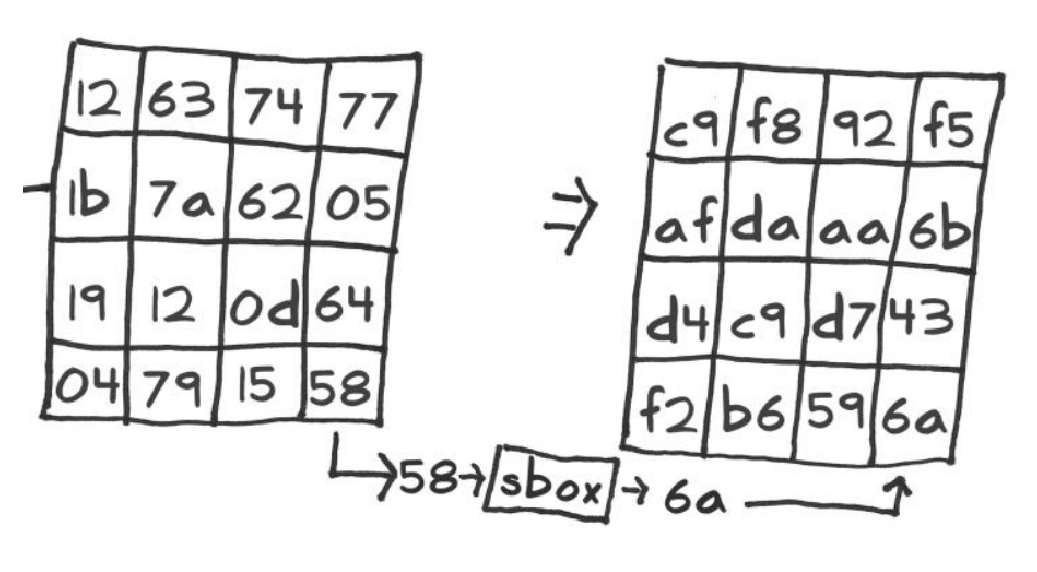 12 63 74 77
1b 7a 62 05
19 12 0d 64
04 79 15 58
⇒
c9 f8 92 f5
af da aa 6b
d4 c9 d7 43
f2 b6 59 6a
58→ sbox → 6a